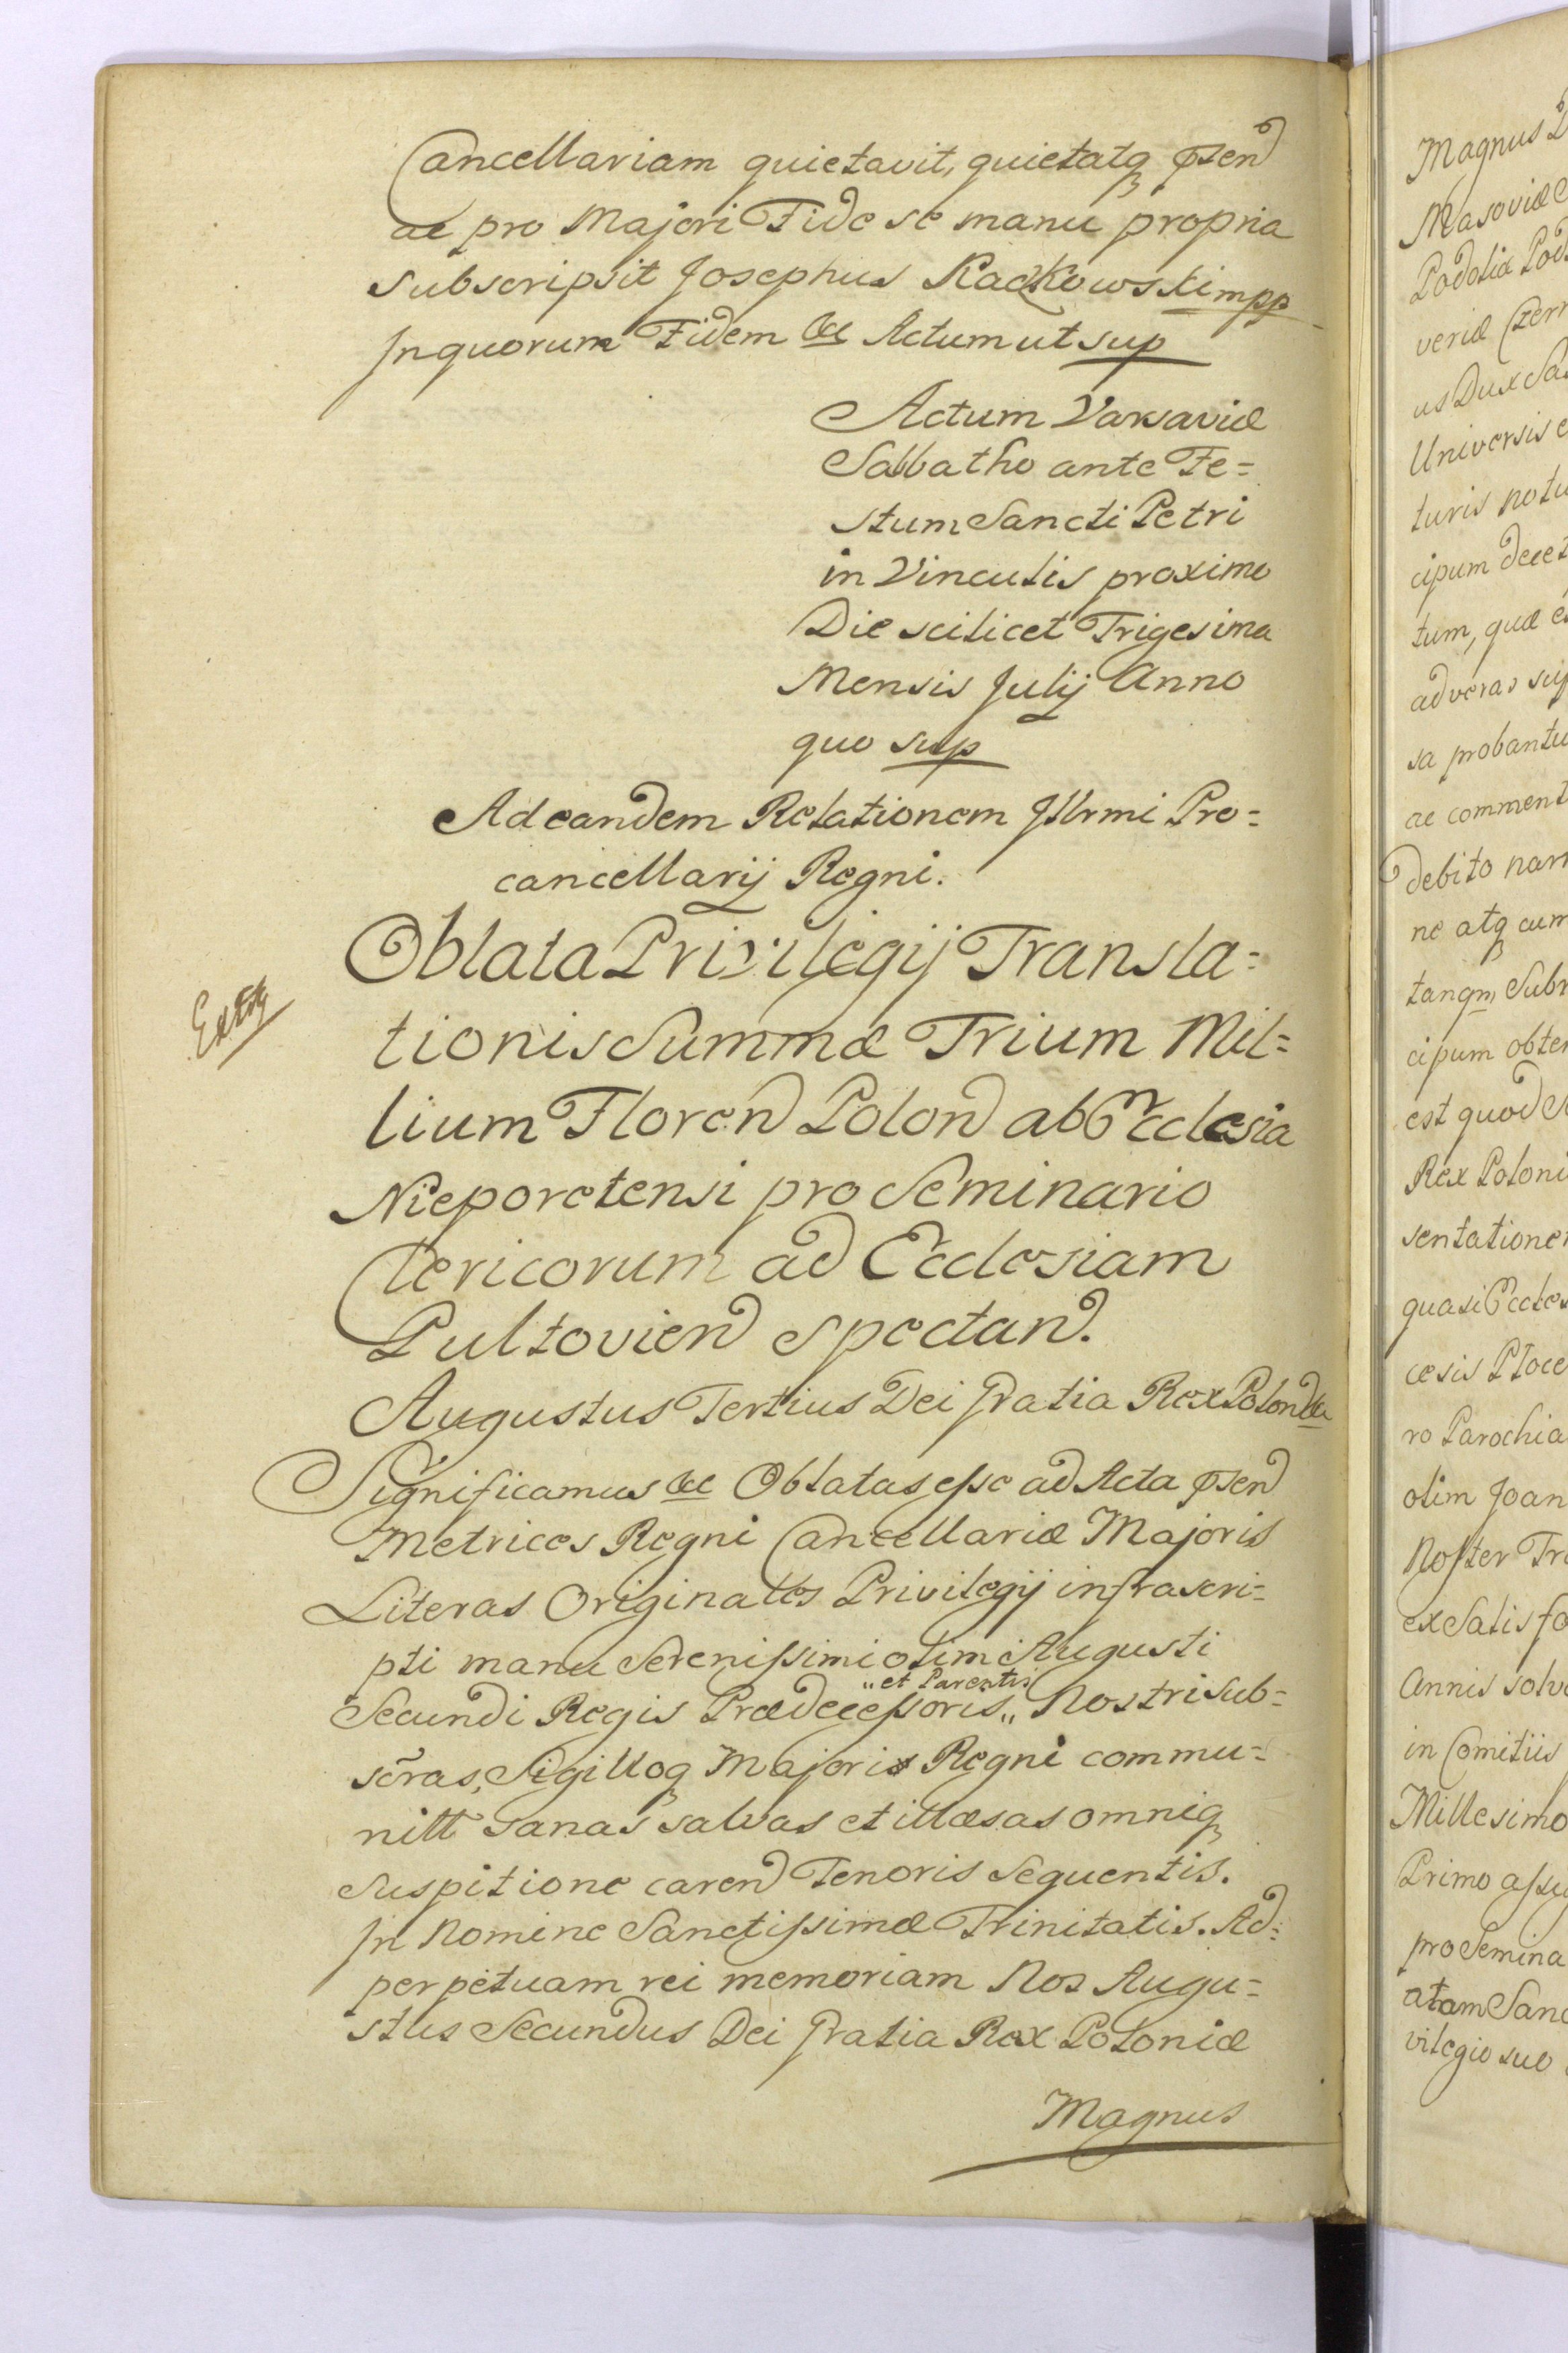 Cancellariam quietavit, quietatq pñsen
ac pro Majori Fide se manu propria
subscripsit Josephus Raczkowski mpp
In quorum Fidem &c Actum ut sup
Actum Varsaviæ
Sabbatho ante Fe=
stum Sancti Petri
in Vinculis proximo
Die scilicet Trigesima
Mensis Julij Anno
quo sup
Ad eandem Relationem Illrmi Pro=
cancellarij Regni.
Extq
Oblata Privilegij Transla=
tionis Summæ Trium Mil=
lium Floren Polon ab Ecclesia
Nieporetensi pro Seminario
Clericorum ad Ecclesiam
Pultovien spectan.
Augustus Tertius Dei Gratia Rex Polon &c
Significamus &c Oblatas esse ad Acta pñsen
Metrices Regni Cancellariæ Majoris
Literas Originales Privilegij infrascri=
pti manu Serenissimi olim Augusti
„et Parentis
Secundi Regis Prædecessoris „ Nostri sub=
scras, Sigilloq Majoris Regni commu=
nitt sanas salvas et illæsas omniq
suspitione caren Tenoris Sequentis.
In Nomine Sanctissimæ Trinitatis. Ad=
perpetuam rei memoriam Nos Augu=
stus Secundus Dei Gratia Rex Poloniæ
Magnus
Magnus
Masoviæ
Podoliæ
veriæ Czer
us Dux Sa
Universis
turis notu
cipum decet
tum, quæ
ad veras sup
sa probantu
ac comment
debito nam
ne atq cum
tanqm Subr
cipum obte
est quod
Rex Poloni
sentatione
quasi Eccles
cesis Ploce
ro Parochia
olim Joan
Noster Tr
ex Satisfa
Annis solv
in Comitiis
Millesimo
Primo assu
pro Semina
atam Sanc
vilegio suo